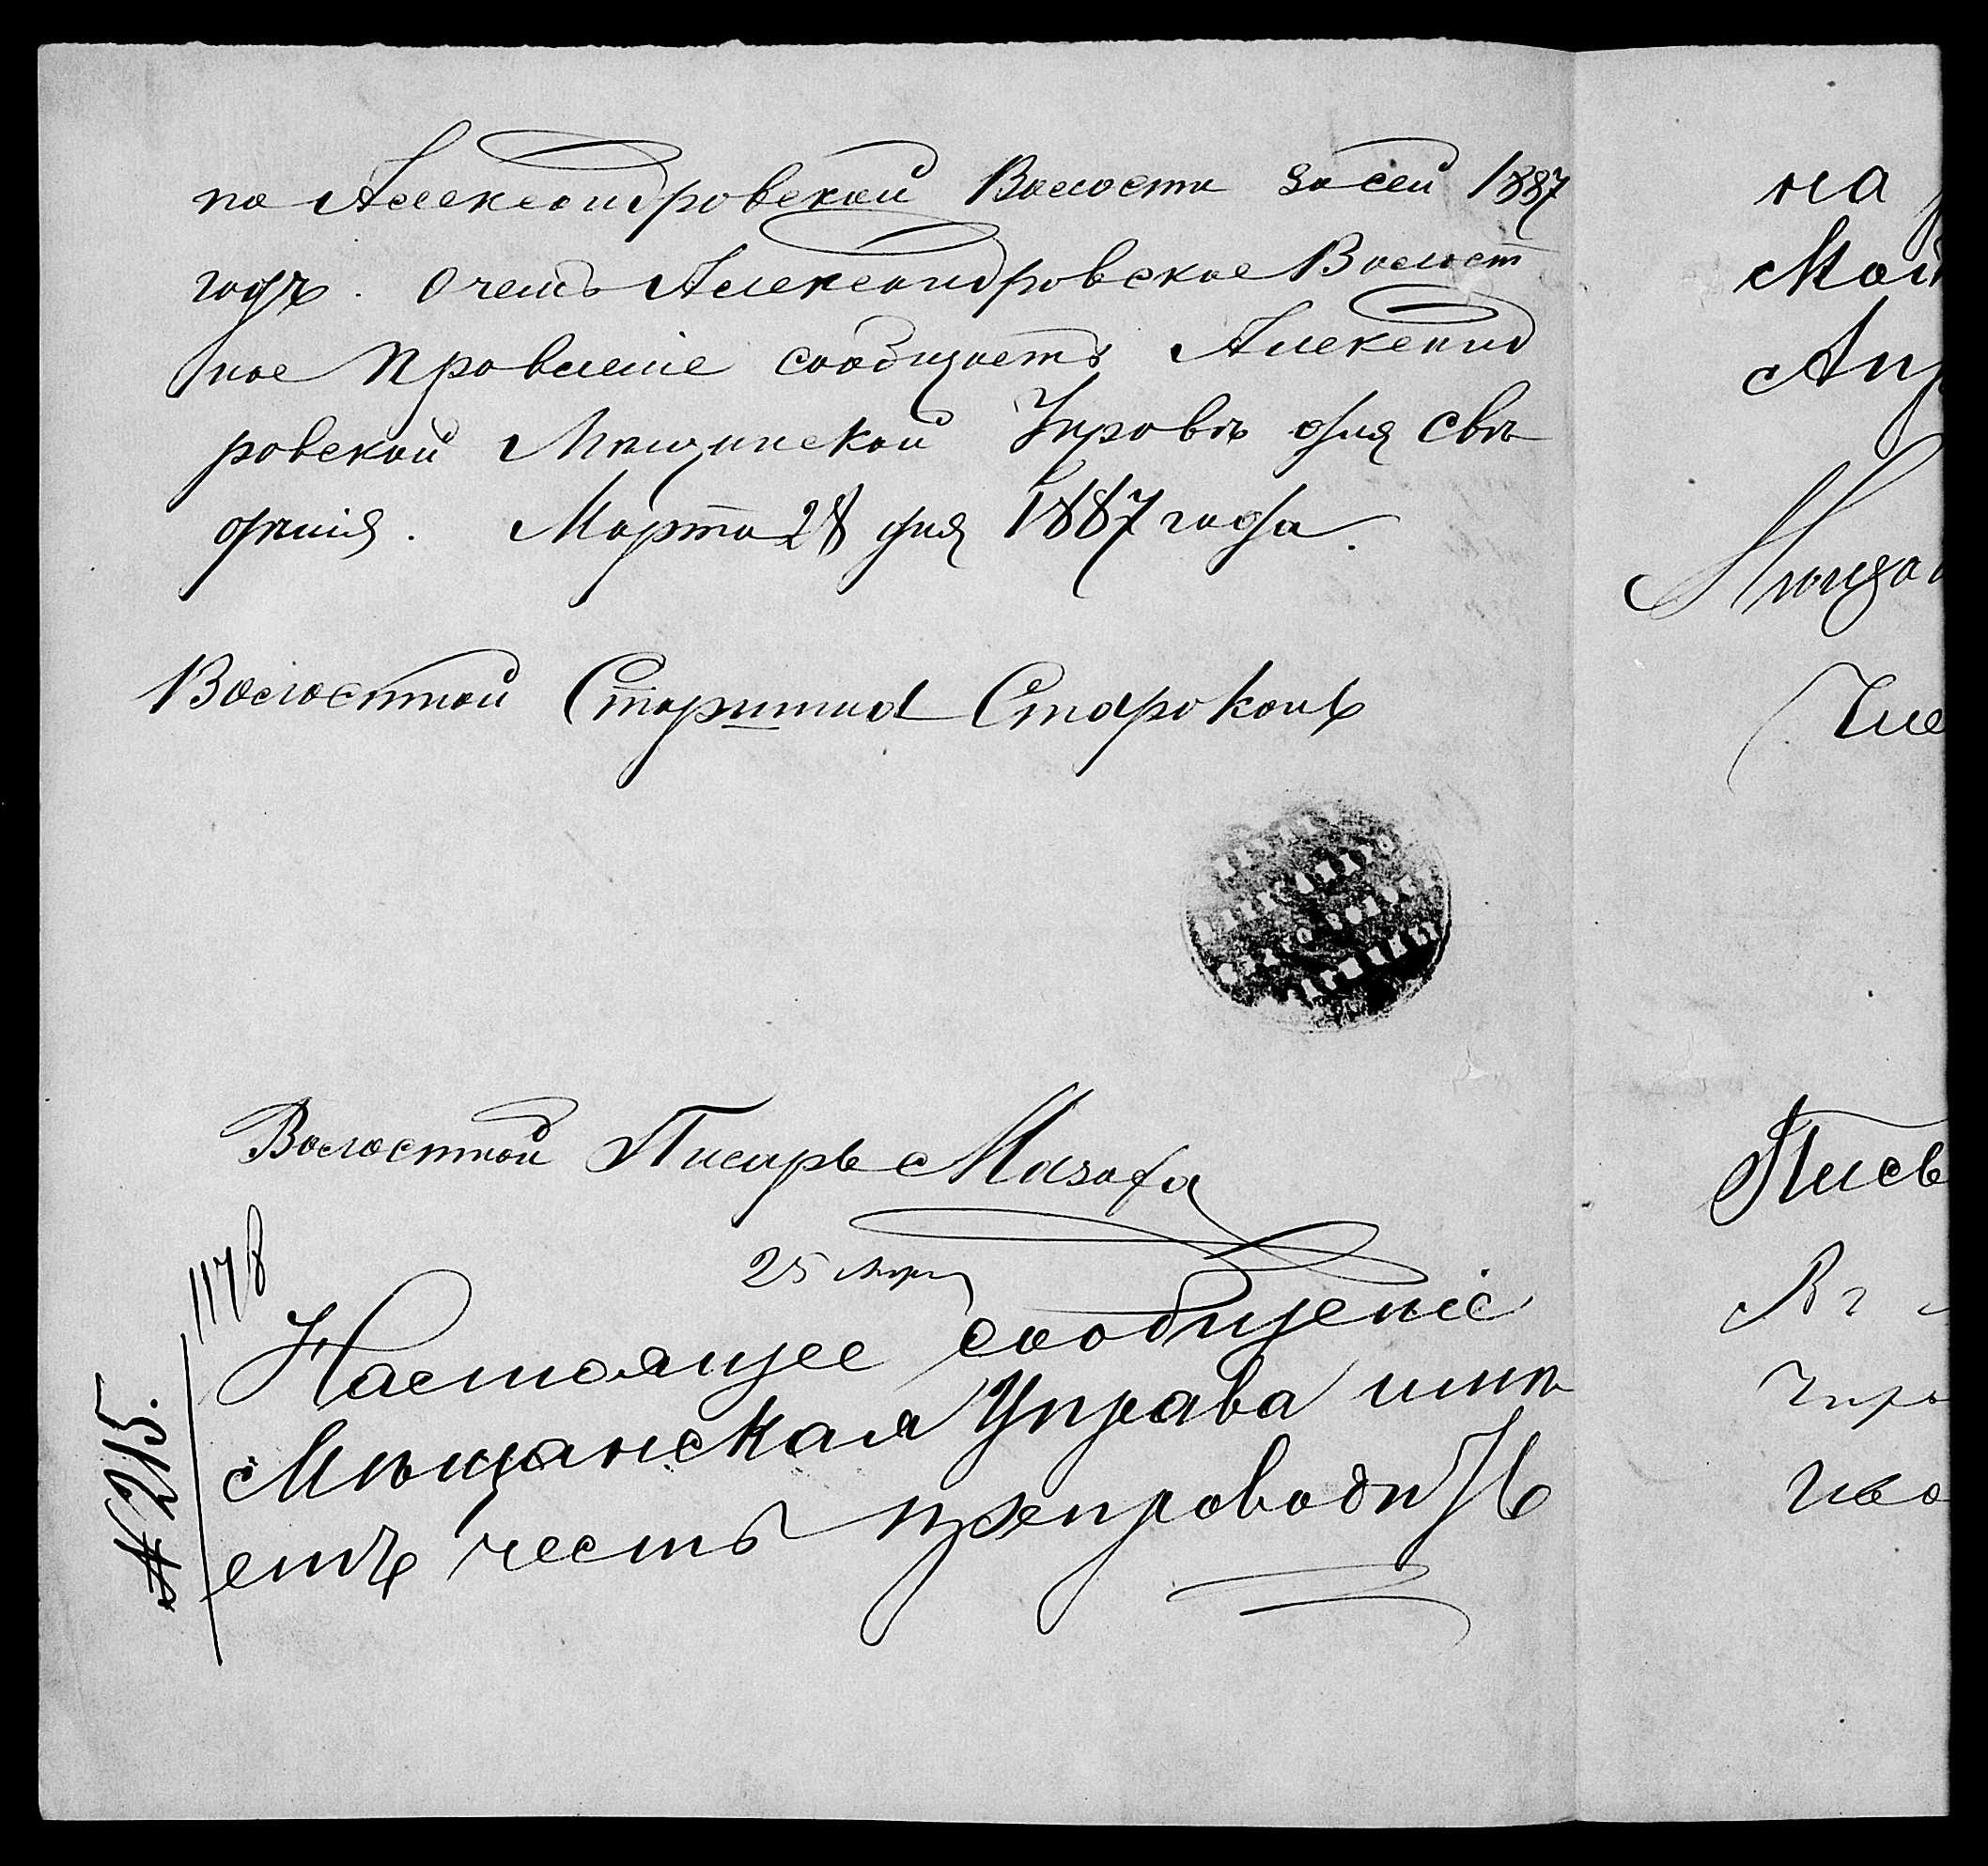 по Александровской Волости за сей 1887
годъ. О чемъ Александровское Волост
ное Правленіе сообщаетъ Александ
ровской Мѣщанской Управѣ для свѣ
дѣнія. Марта 28 дня 1887 года.
Волостной Старшина Староконь
Волостной Писарь
25 мар
1178
№ 215.
Настоящее сообщеніе
Мѣщанская Управа имѣ
етъ честь препроводить
на
Мой
Апр
Мѣщан
Чле
Писв